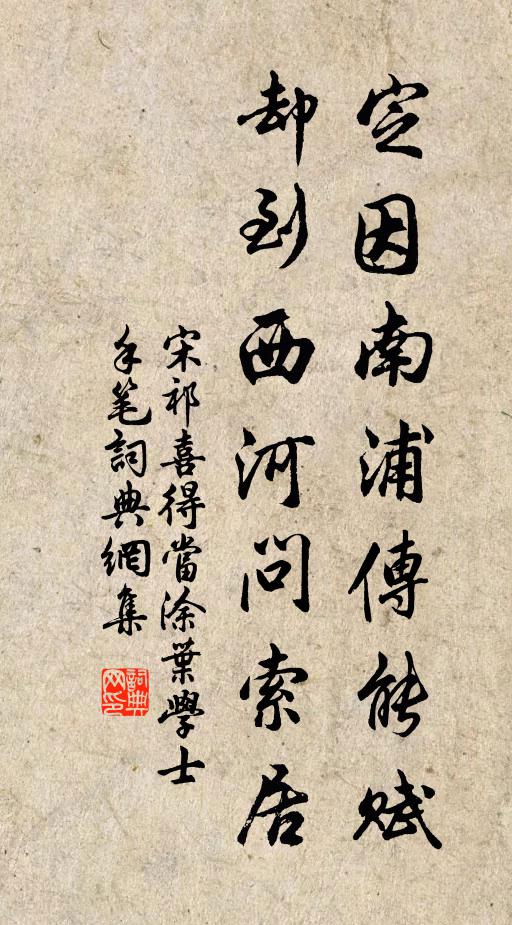 定因南浦傳能賦
却到西河問索居
宋祁喜得當涂葉學士
手笔詞典網集
詞典
网印